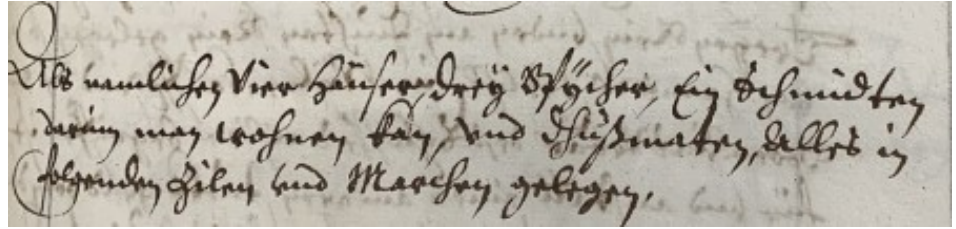 Als namlichen Vier Häüser, drey Spÿcher, Ein Schmidten
darinn man wohnen kan, und dhußmaten, Alles in
folgenden Zilen und Marchen gelegen.